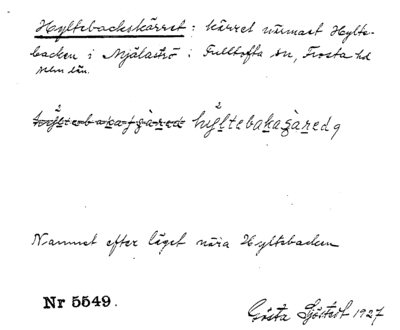 Hyltebackskärret: kärret närmast Hylte-
backen i Mjälaströ i Fulltofta sn, Frosta hd
Mlm län.
hy̆ltebakaʂäredq
Namnet efter läget nära Hyltebacken
Nr 5549.
Gösta Sjöstedt 1927